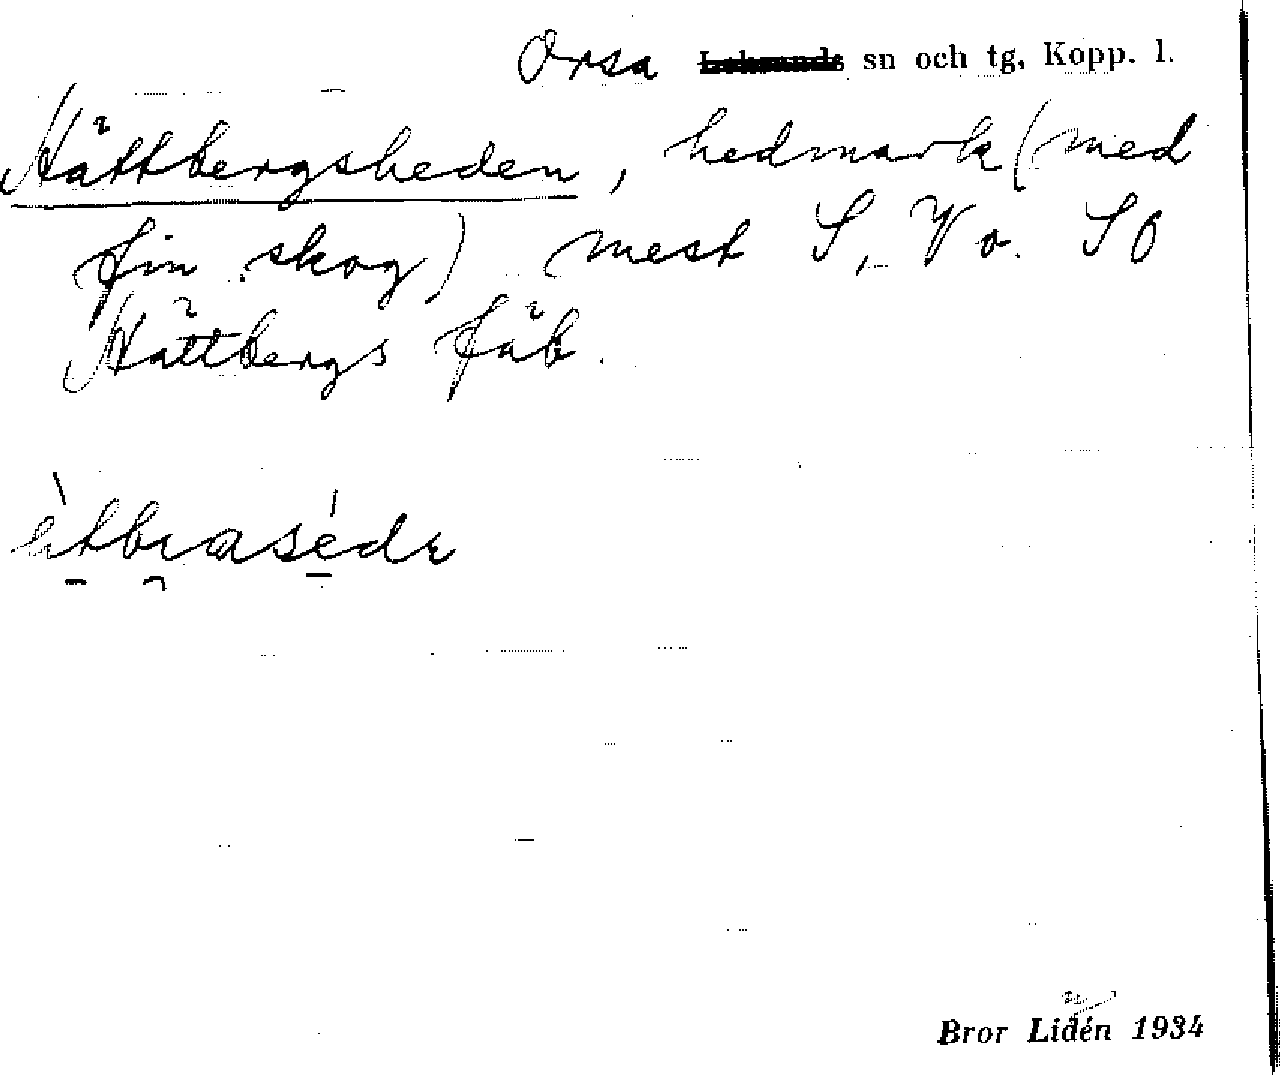 Orsa Leksands sn och tg, Kopp. l.
Hättbergsheden, hedmark (med
fin skog) mest S, V o. SO
Hättbergs fäb.
Bror Lidén 1934